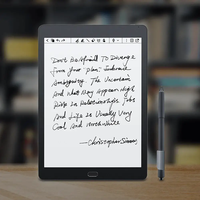 "Don't Be Afraid To Diverge
From Your Plan; Embrace
Ambiguity. The Uncertain
And What May Appear High
Risk In Relationships, Jobs
And Life is Usually Very
Cool And Worthwhile
—Christopher